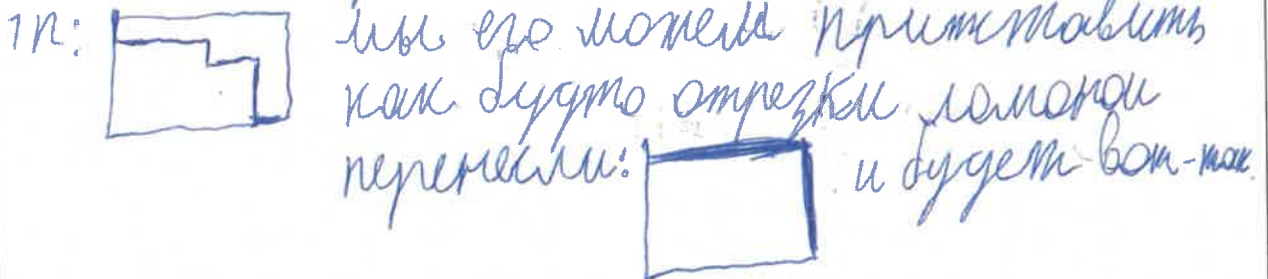 1п: мы его можем пристставить
как будто отрезки ломаной
перенесли: и будет вот-так.